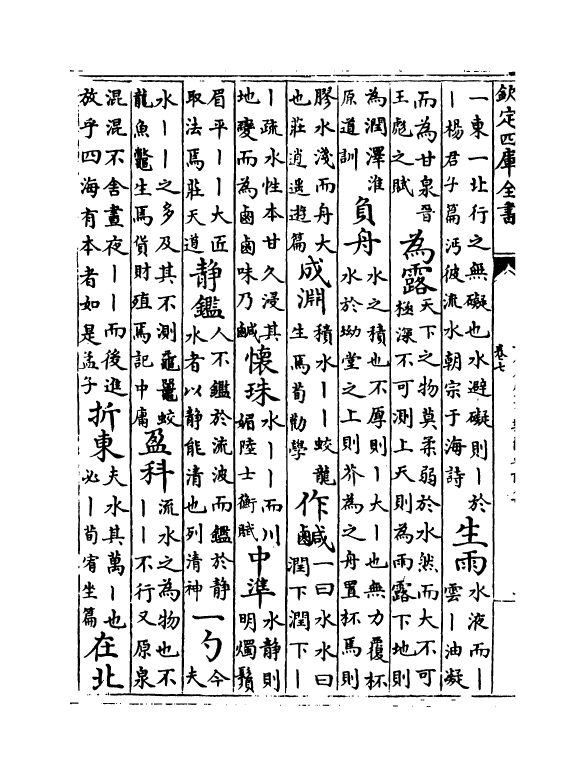 欽定四庫全書
卷七
一東一北行之無礙也水避礙則丨於
丨楊君子篇沔彼流水朝宗于海詩
生雨
水液而丨
雲丨油凝
而為甘泉晉
王彪之賦
為露
天下之物莫柔弱於水然而大不可
極深不可測上天則為雨露下地則
為潤澤淮
原道訓
負舟
水之積也不厚則丨大丨也無力覆杯
水於坳堂之上則芥為之舟置杯焉則
膠水淺而舟大
也莊逍遙遊篇
成淵
積水丨丨蛟龍
生焉荀勸學
作鹹
一曰水水曰
潤下潤下丨
丨疏水性本甘久浸其
地變而為鹵鹵味乃鹹
懷珠
水丨丨而川
媚陸士衡賦
中準
水靜則
明燭鬚
眉平丨丨大匠
取法焉莊天道
靜鑑
人不鑑於流波而鑑於靜
水者以靜能清也列清神
一勺
今
夫
水丨丨之多及其不測黿鼉蛟
龍魚鼈生焉貨財殖焉記中庸
盈科
流水之為物也不
丨丨不行又原泉
混混不舍晝夜丨丨而後進
放乎四海有本者如是孟子
折東
夫水其萬丨也
必丨荀宥坐篇
在北